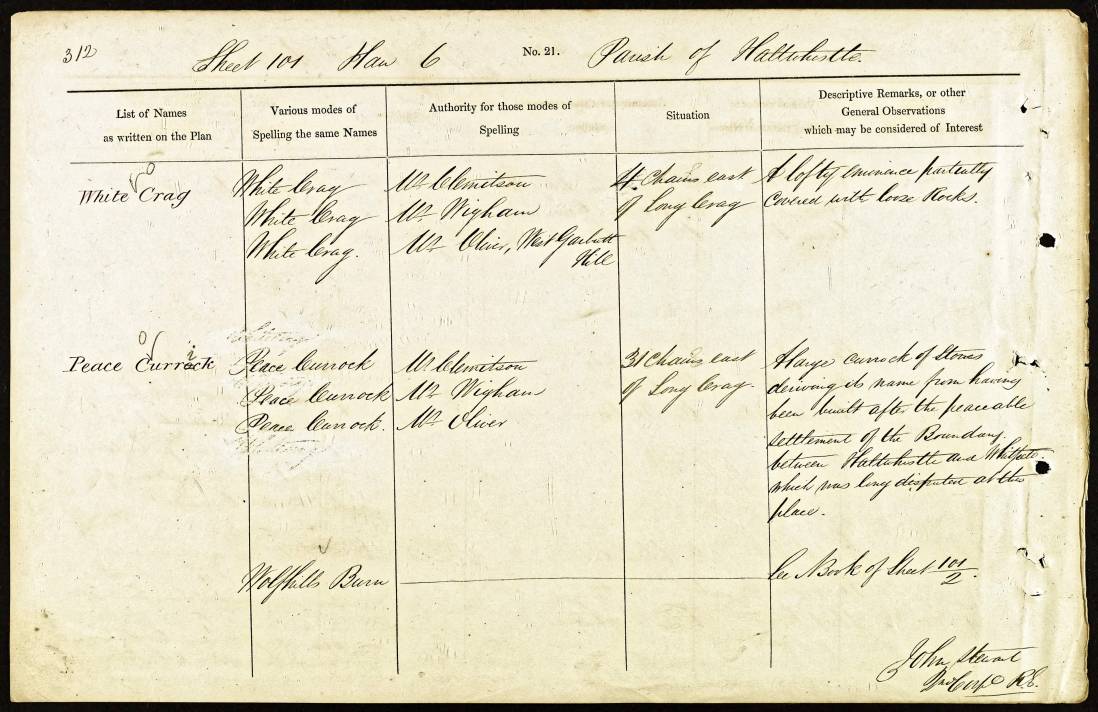 312
Sheet 101 Haw 6 No. 21. Parish of Haltwhistle.
List of Names
as written on the Plan
Various modes of
Spelling the same Names
Authority for those modes of
Spelling
Situation
Descriptive Remarks, or other
General Observations
which may be considered of Interest
White Crag
White Crag
White Crag
White Crag.
Mr Clemitson
Mr Wigham
Mr Oliver, West Garbutt
Hill
4 Chains east
of Long Crag
A lofty eminence partially
Covered with loose Rocks.
Peace Currock
i
Peace Currock
Peace Currock
Peace Currock.
Mr Clemitson
Mr Wigham
Mr Oliver
31 Chains east
of Long Crag.
A large currock of Stones
deriving its name from having
been built after the peaceable
settlement of the Boundary
between Haltwhistle and
which was long disputed at this
place.
Burn
See N Book of Sheet 101/2.
John Stewart
Corpl R.E.